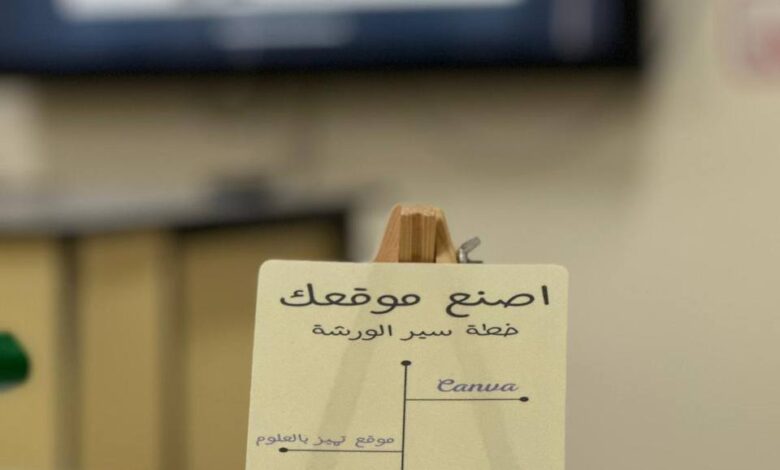 اصنع موقعك
خطة سير الورشة
Canva
موقع تميز بالعلوم